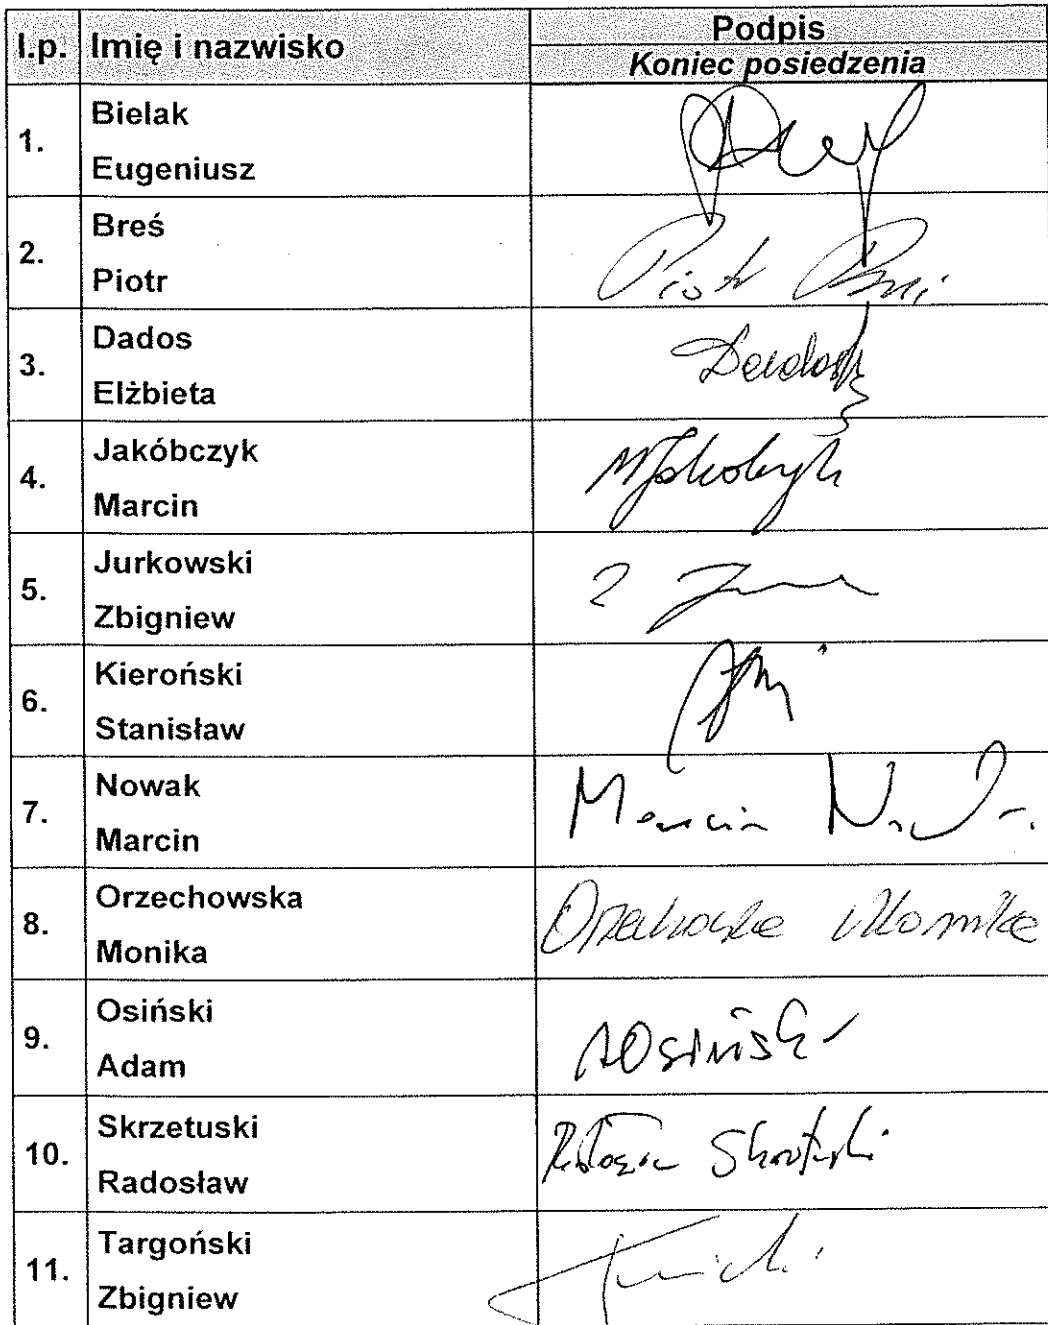 l.p. Imię i nazwisko Podpis
Koniec posiedzenia
1. Bielak
Eugeniusz
2. Breś
Piotr
Piotr
3. Dados
Elżbieta
Dados
4. Jakóbczyk
Marcin
MJakóbczyk
5. Jurkowski
Zbigniew
6. Kieroński
Stanisław
7. Nowak
Marcin
Marcin
8. Orzechowska
Monika
Orzechowska Monika
9. Osiński
Adam
AOsiński
10. Skrzetuski
Radosław
Radosław Skrzetuski
11. Targoński
Zbigniew